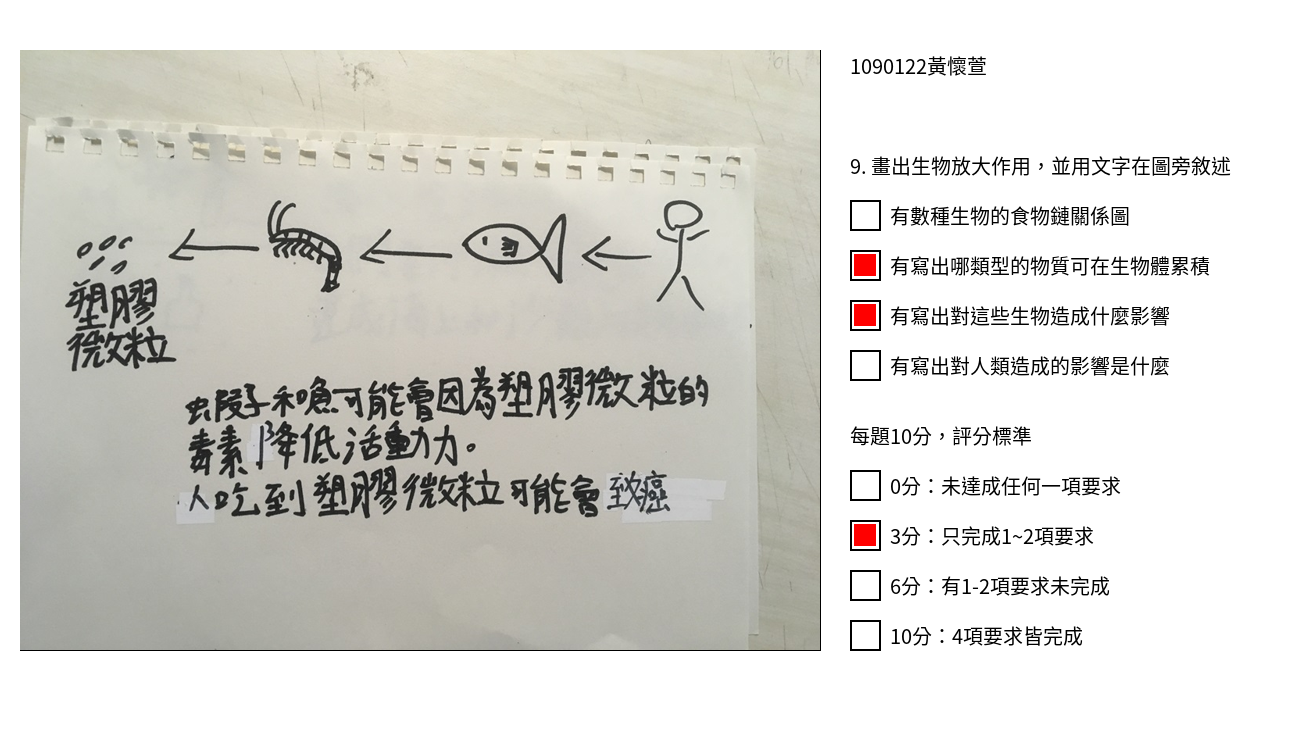 塑膠
微粒
蝦子和魚可能會因為塑膠微粒的
毒素降低活動力。
人吃到塑膠微粒可能會致癌
1090122黃懷萱
9. 畫出生物放大作用，並用文字在圖旁敘述
有數種生物的食物鏈關係圖
有寫出哪類型的物質可在生物體累積
有寫出對這些生物造成什麼影響
有寫出對人類造成的影響是什麼
每題10分，評分標準
0分：未達成任何一項要求
3分：只完成1~2項要求
6分：有1-2項要求未完成
10分：4項要求皆完成